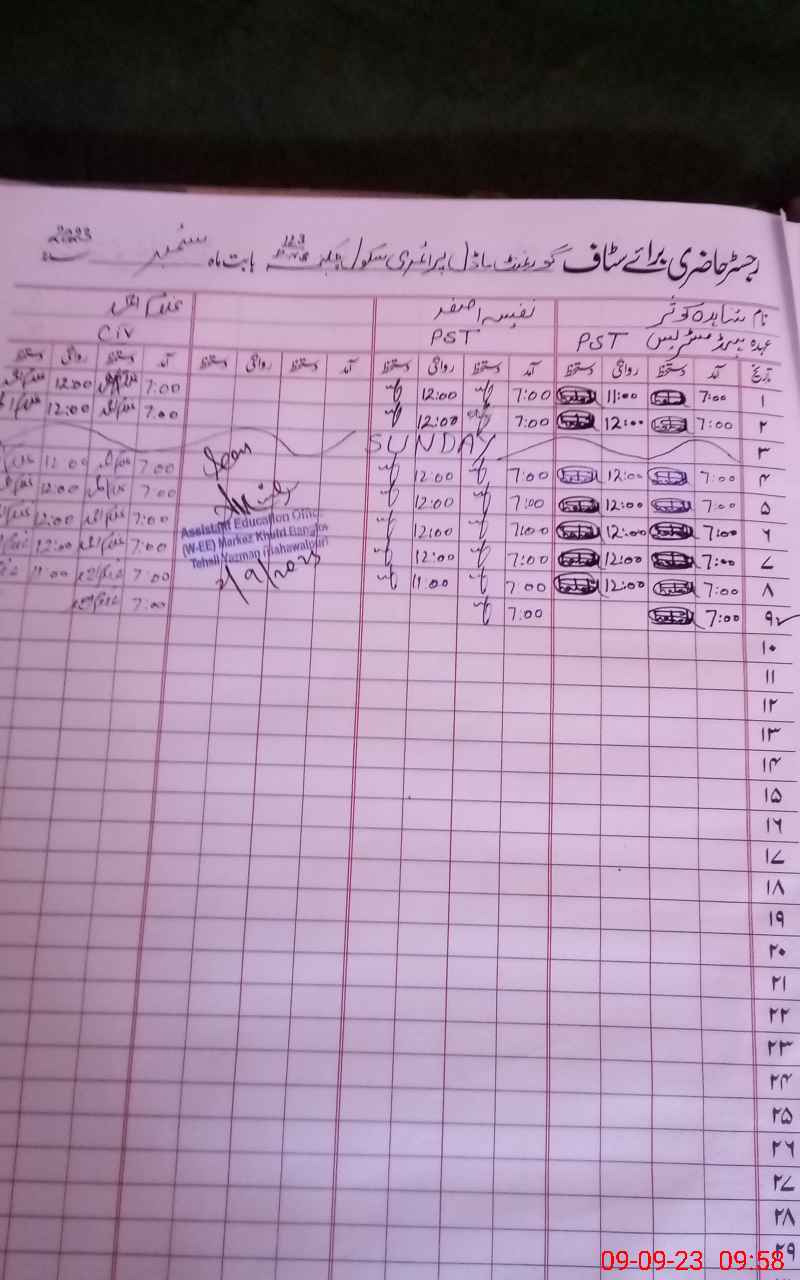 رجسٹر حاضری برائے سٹاف گورنمنٹ ماڈل پرائمری سکول چک 123 بابت ماہ ستمبر 2023
نام شاہدہ کوثر نفیسہ اصغر
عہدہ ہیڈ مسٹریس PST PST Civ
تاریخ آمد دستخط روانگی دستخط آمد دستخط روانگی دستخط آمد دستخط روانگی دستخط آمد دستخط روانگی دستخط
۱ 7:00 11:00 7:00 12:00 7:00 12:00
۲ 7:00 12:00 7:00 12:00 7:00 12:00
۳ SUNDAY
۴ 7:00 12:00 7:00 12:00 7:00 12:00 Seen
۵ 7:00 12:00 7:00 12:00 7:00 12:00
۶ 7:00 12:00 7:00 12:00 7:00 12:00
۷ 7:00 12:00 7:00 12:00 7:00 12:00
۸ 7:00 12:00 7:00 11:00 7:00 11:00
۹ 7:00 7:00 7:00
Assistant Education Officer
(W-EE) Markaz Khutri Banglow
Tehsil Yazman (Bahawalpur)
۱۰
۱۱
۱۲
۱۳
۱۴
۱۵
۱۶
۱۷
۱۸
۱۹
۲۰
۲۱
۲۲
۲۳
۲۴
۲۵
۲۶
۲۷
۲۸
۲۹
09-09-23 09:58